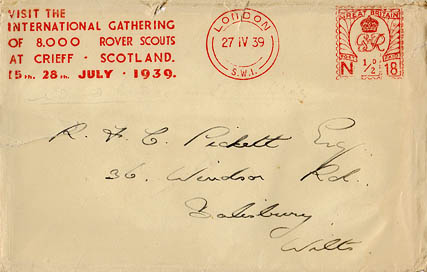 VISIT THE
INTERNATIONAL GATHERING
OF 8.000 ROVER SCOUTS
AT CRIEFF · SCOTLAND.
15TH. 28TH. JULY · 1939.
LONDON
27 IV 39
S.W.1.
GREAT BRITAIN
N 1/2D 18
R. F. C. Pickett Esq
36. Windsor Rd.
Salisbury
Wilts.